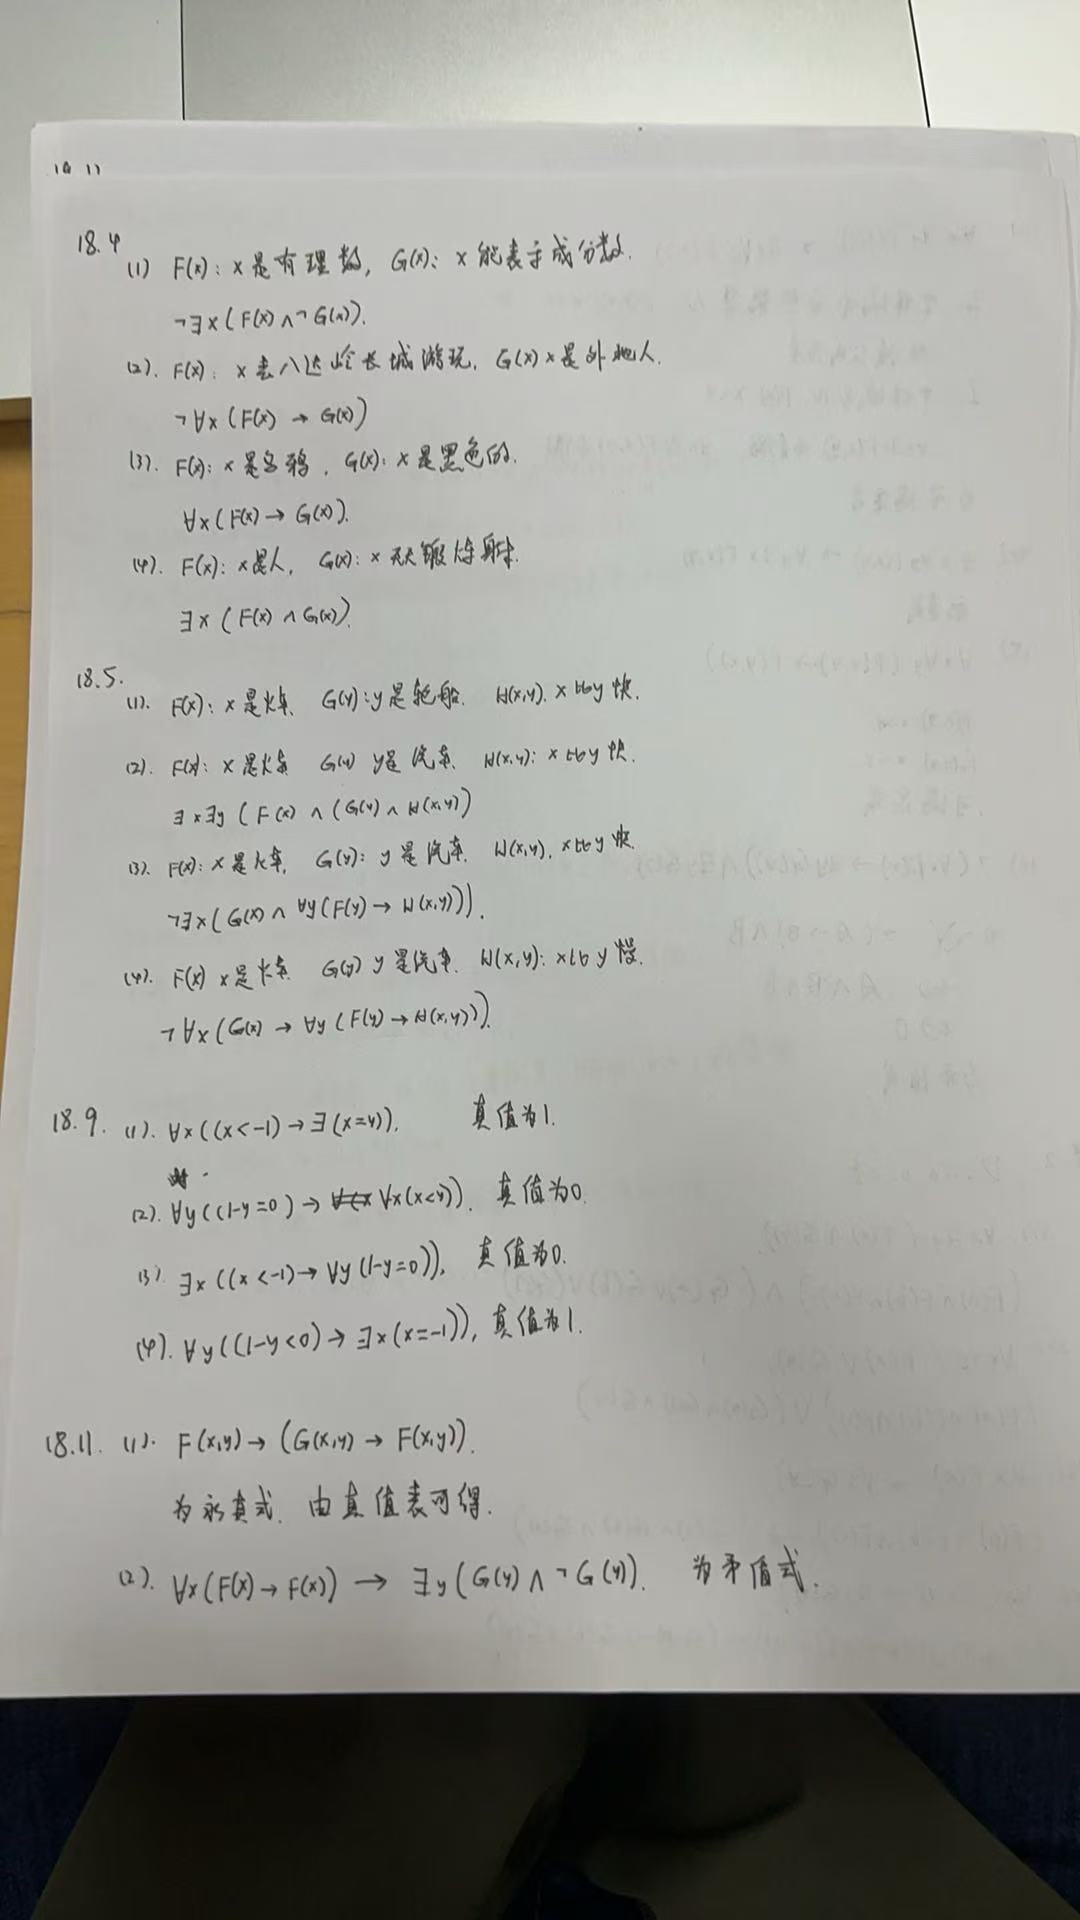 18.4
(1) F(x): x是有理数, G(x): x能表示成分数.
¬∃x(F(x)∧¬G(x)).
(2). F(x): x去八达岭长城游玩, G(x) x是外地人.
¬∀x(F(x)→G(x))
(3). F(x): x是乌鸦, G(x): x是黑色的.
∀x(F(x)→G(x)).
(4). F(x): x是人, G(x): x天天锻炼身体.
∃x(F(x)∧G(x)).
18.5.
(1). F(x): x是火车. G(y): y是轮船. H(x,y). x比y快.
(2). F(x): x是火车 G(y) y是汽车. H(x,y): x比y快.
∃x∃y(F(x)∧(G(y)∧H(x,y))
(3). F(x): x是火车, G(y): y是汽车. H(x,y), x比y快.
¬∃x(G(x)∧∀y(F(y)→H(x,y))).
(4). F(x) x是火车. G(y) y是汽车. H(x,y): x比y慢.
¬∀x(G(x)→∀y(F(y)→H(x,y))).
18.9. (1). ∀x((x<-1)→∃(x=y)). 真值为1.
(2). ∀y((1-y=0)→∀x(x<y)). 真值为0.
(3). ∃x((x<-1)→∀y(1-y=0)), 真值为0.
(4). ∀y((1-y<0)→∃x(x=-1)), 真值为1.
18.11. (1). F(x,y)→(G(x,y)→F(x,y)).
为永真式. 由真值表可得.
(2). ∀x(F(x)→F(x))→∃y(G(y)∧¬G(y)). 为矛盾式.